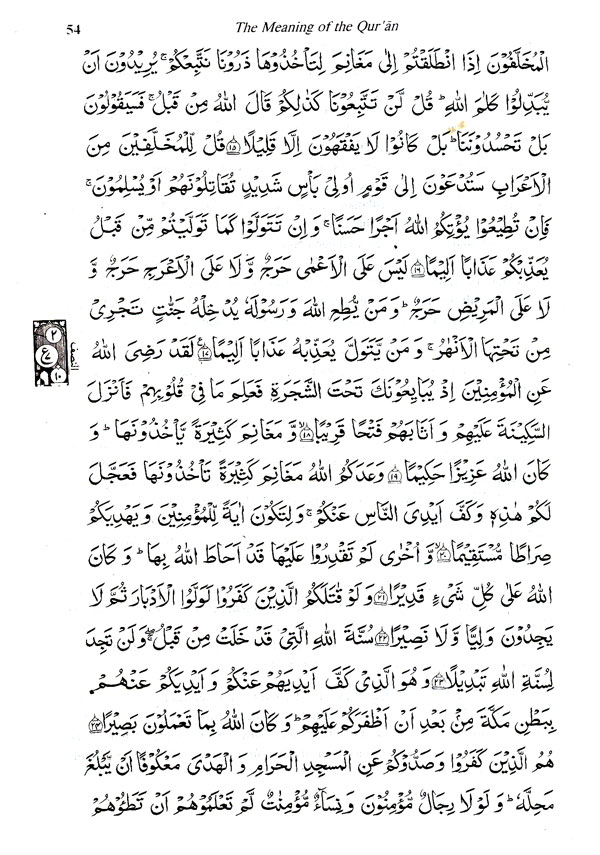 54
The Meaning of the Qur'ān
الْمُخَلَّفُوْنَ اِذَا انْطَلَقْتُمْ اِلٰى مَغَانِمَ لِتَاْخُذُوْهَا ذَرُوْنَا نَتَّبِعْكُمْ ۚ يُرِيْدُوْنَ اَنْ
يُّبَدِّلُوْا كَلٰمَ اللّٰهِ ؕ قُلْ لَّنْ تَتَّبِعُوْنَا كَذٰلِكُمْ قَالَ اللّٰهُ مِنْ قَبْلُ ۚ فَسَيَقُوْلُوْنَ
بَلْ تَحْسُدُوْنَنَا ؕ بَلْ كَانُوْا لَا يَفْقَهُوْنَ اِلَّا قَلِيْلًا ﴿۱۵﴾ قُلْ لِّلْمُخَلَّفِيْنَ مِنَ
الْاَعْرَابِ سَتُدْعَوْنَ اِلٰى قَوْمٍ اُولِىْ بَاْسٍ شَدِيْدٍ تُقَاتِلُوْنَهُمْ اَوْ يُسْلِمُوْنَ ۚ
فَاِنْ تُطِيْعُوْا يُؤْتِكُمُ اللّٰهُ اَجْرًا حَسَنًا ۚ وَ اِنْ تَتَوَلَّوْا كَمَا تَوَلَّيْتُمْ مِّنْ قَبْلُ
يُعَذِّبْكُمْ عَذَابًا اَلِيْمًا ﴿۱۶﴾ لَيْسَ عَلَى الْاَعْمٰى حَرَجٌ وَّ لَا عَلَى الْاَعْرَجِ حَرَجٌ وَّ
لَا عَلَى الْمَرِيْضِ حَرَجٌ ؕ وَ مَنْ يُّطِعِ اللّٰهَ وَ رَسُوْلَهٗ يُدْخِلْهُ جَنّٰتٍ تَجْرِىْ
مِنْ تَحْتِهَا الْاَنْهٰرُ ۚ وَ مَنْ يَّتَوَلَّ يُعَذِّبْهُ عَذَابًا اَلِيْمًا ﴿۱۷﴾ لَقَدْ رَضِىَ اللّٰهُ
عَنِ الْمُؤْمِنِيْنَ اِذْ يُبَايِعُوْنَكَ تَحْتَ الشَّجَرَةِ فَعَلِمَ مَا فِىْ قُلُوْبِهِمْ فَاَنْزَلَ
السَّكِيْنَةَ عَلَيْهِمْ وَ اَثَابَهُمْ فَتْحًا قَرِيْبًا ﴿۱۸﴾ وَّ مَغَانِمَ كَثِيْرَةً يَّاْخُذُوْنَهَا ؕ وَ
كَانَ اللّٰهُ عَزِيْزًا حَكِيْمًا ﴿۱۹﴾ وَعَدَكُمُ اللّٰهُ مَغَانِمَ كَثِيْرَةً تَاْخُذُوْنَهَا فَعَجَّلَ
لَكُمْ هٰذِهٖ وَ كَفَّ اَيْدِىَ النَّاسِ عَنْكُمْ ۚ وَ لِتَكُوْنَ اٰيَةً لِّلْمُؤْمِنِيْنَ وَ يَهْدِيَكُمْ
صِرَاطًا مُّسْتَقِيْمًا ﴿۲۰﴾ وَّ اُخْرٰى لَمْ تَقْدِرُوْا عَلَيْهَا قَدْ اَحَاطَ اللّٰهُ بِهَا ؕ وَ كَانَ
اللّٰهُ عَلٰى كُلِّ شَىْءٍ قَدِيْرًا ﴿۲۱﴾ وَ لَوْ قٰتَلَكُمُ الَّذِيْنَ كَفَرُوْا لَوَلَّوُا الْاَدْبَارَ ثُمَّ لَا
يَجِدُوْنَ وَلِيًّا وَّ لَا نَصِيْرًا ﴿۲۲﴾ سُنَّةَ اللّٰهِ الَّتِىْ قَدْ خَلَتْ مِنْ قَبْلُ ۖ وَ لَنْ تَجِدَ
لِسُنَّةِ اللّٰهِ تَبْدِيْلًا ﴿۲۳﴾ وَ هُوَ الَّذِىْ كَفَّ اَيْدِيَهُمْ عَنْكُمْ وَ اَيْدِيَكُمْ عَنْهُمْ
بِبَطْنِ مَكَّةَ مِنْۢ بَعْدِ اَنْ اَظْفَرَكُمْ عَلَيْهِمْ ؕ وَ كَانَ اللّٰهُ بِمَا تَعْمَلُوْنَ بَصِيْرًا ﴿۲۴﴾
هُمُ الَّذِيْنَ كَفَرُوْا وَ صَدُّوْكُمْ عَنِ الْمَسْجِدِ الْحَرَامِ وَ الْهَدْىَ مَعْكُوْفًا اَنْ يَّبْلُغَ
مَحِلَّهٗ ؕ وَ لَوْ لَا رِجَالٌ مُّؤْمِنُوْنَ وَ نِسَآءٌ مُّؤْمِنٰتٌ لَّمْ تَعْلَمُوْهُمْ اَنْ تَطَـُٔوْهُمْ
النصف
۲
ع
۱۰